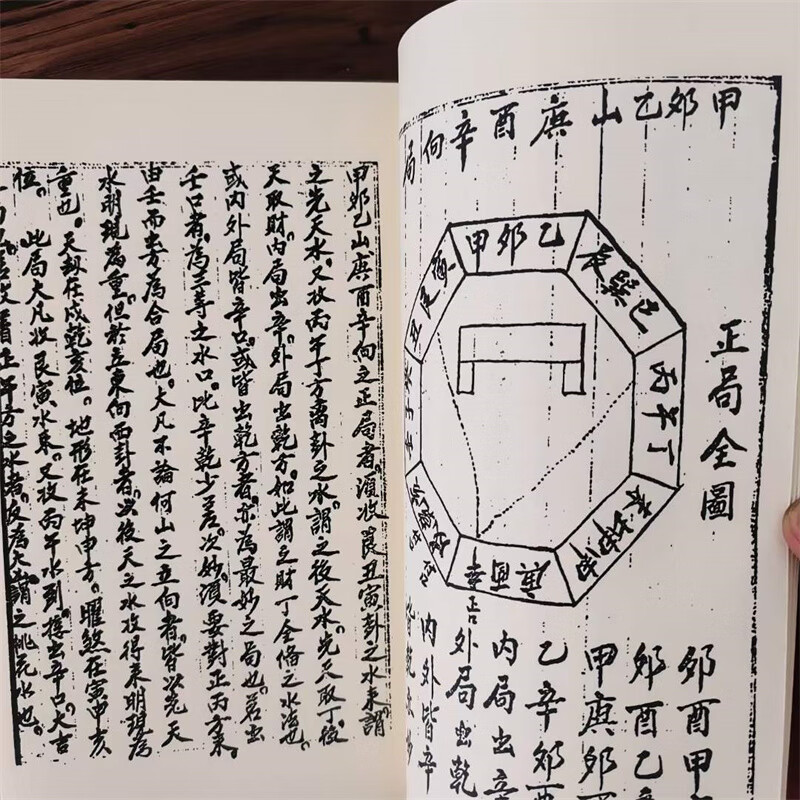 甲夘乙山庚酉辛向局
正局全圖
甲夘乙
辰巽巳
丙午丁
未坤申
庚酉辛
夘酉甲
夘酉乙
甲庚夘
乙辛夘酉
内局出辛
外局出乾
内外皆辛
甲夘乙山庚酉辛向之正局者。須收艮丑寅卦之水來。謂
之先天水。又收丙午丁方离卦之水。謂之後天水。先天取丁。後
天取財。内局出辛。外局出乾方。如此謂之財丁全俻之水法也。
或内外局皆辛口。或皆出乾方者。亦為最妙之局也。若出
壬口者。為三等之水口。比辛乾少差次妙。須要對正丙方來。
由壬而去方為合局也。大凡不論何山之立向者。皆以先天
水明現為重。但於立東向西卦者。以後天之水收得來明現為
重也。天劫在戌乾亥位。地形在未坤申方。曜煞在寅申亥
位。
此局大凡收艮寅水來。又收丙午水到。擇出辛口。大吉
午方之水者。反為大謂之桃花水也。